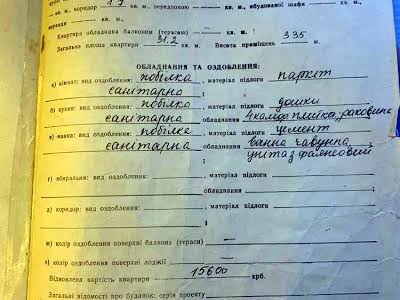 кв. м., коридор 1,9 кв. м., передпокою — кв. м., вбудованої шафи
кв. м.,
веранди кв. м.
Квартира обладнана балконом (терасою) — кв. м.
Загальна площа квартири 31.2 кв. м. Висота приміщень 335 м.
ОБЛАДНАННЯ ТА ОЗДОБЛЕННЯ:
а) кімнат: вид оздоблення: побілка, матеріал підлоги паркет
санітарно ;
б) кухні: вид оздоблення: побілка, матеріал підлоги дошки
санітарно обладнання 4 камф плитка, раковина
в) ванна: вид оздоблення: побілка, матеріал підлоги цемент
санітарна обладнання ванна чавунна,
; унітаз фаянсовий
г) вбиральня: вид оздоблення: , матеріал підлоги
обладнання ;
д) коридор: вид оздоблення: , матеріал підлоги
;
ж) колір оздоблення поверхні балкона (тераси) —
з) колір оздоблення поверхні лоджії —
Відновлена вартість квартири 15600 крб.
Загальні відомості про будинок: серія проекту